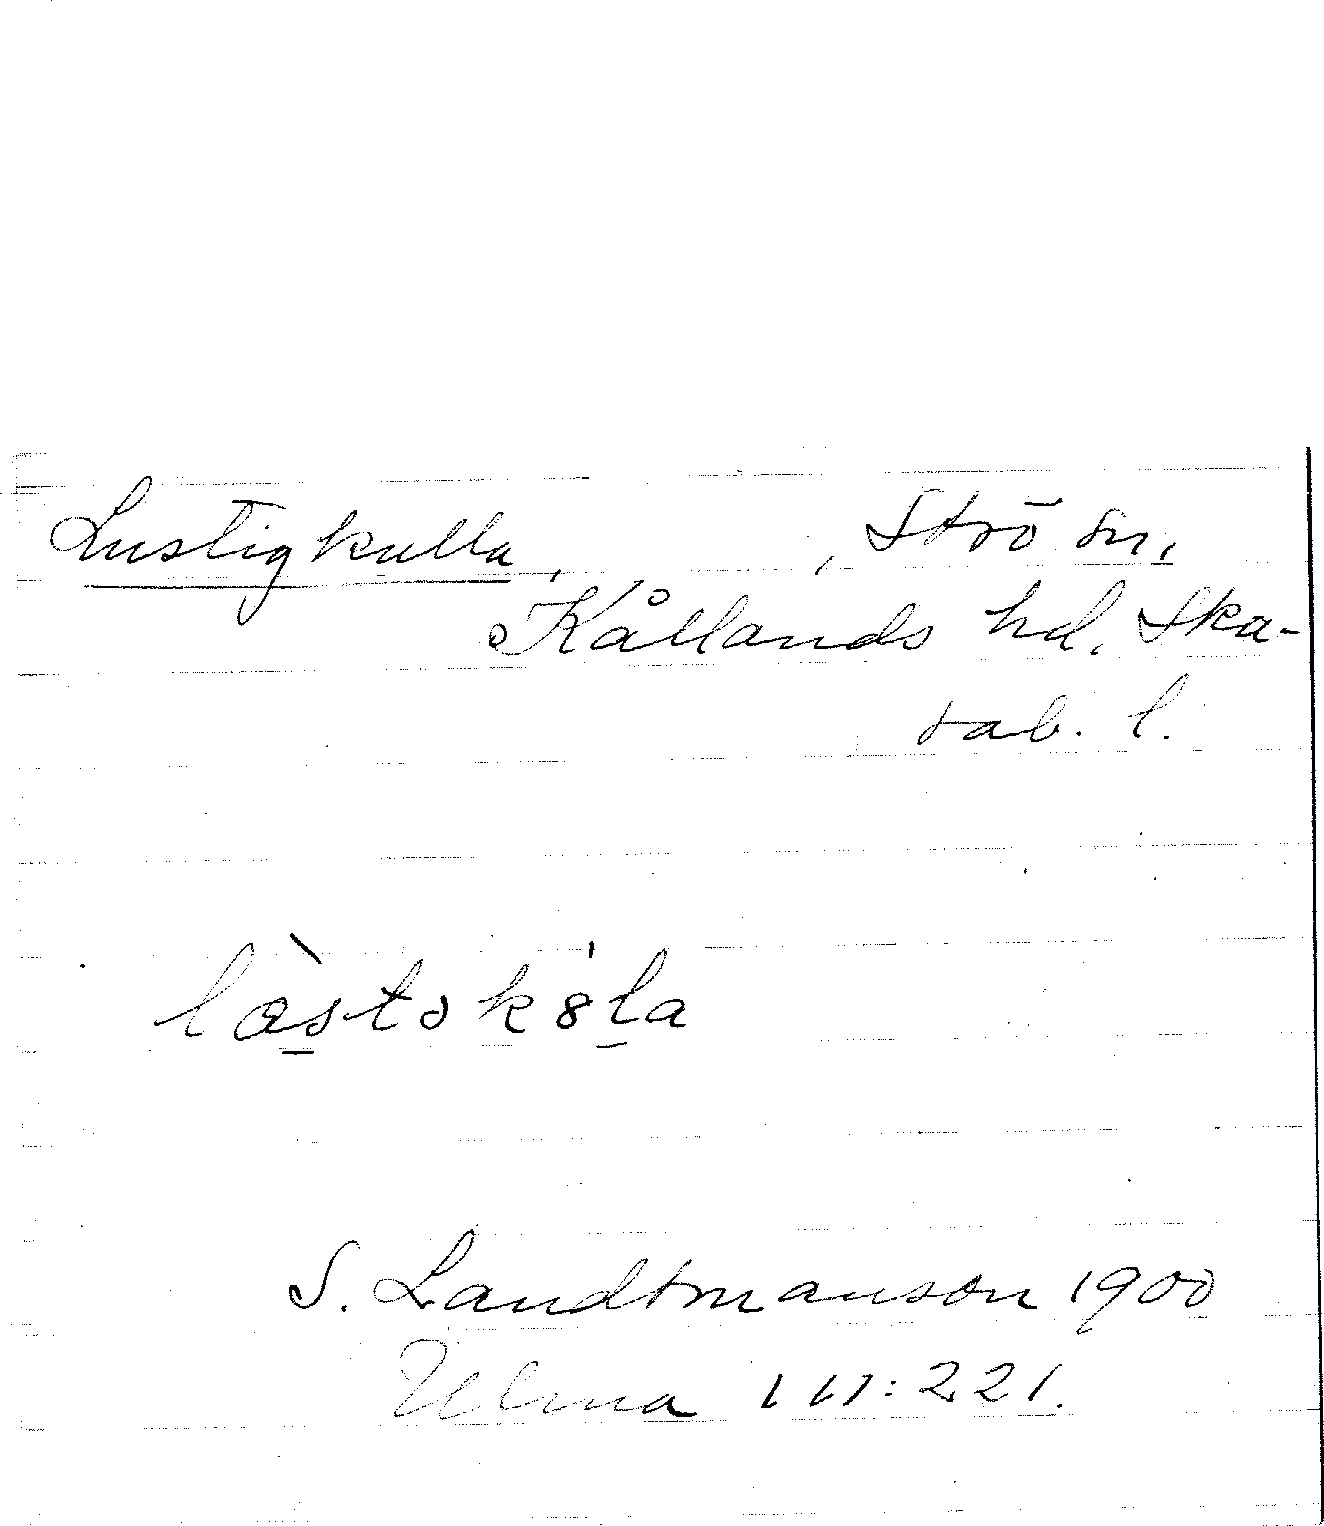 Lustigkulla, , Strö sn,
Kållands hd. Ska-
rab. l.
lo̠stək8l̠a
S. Landtmanson 1900
Ulma 111:221.